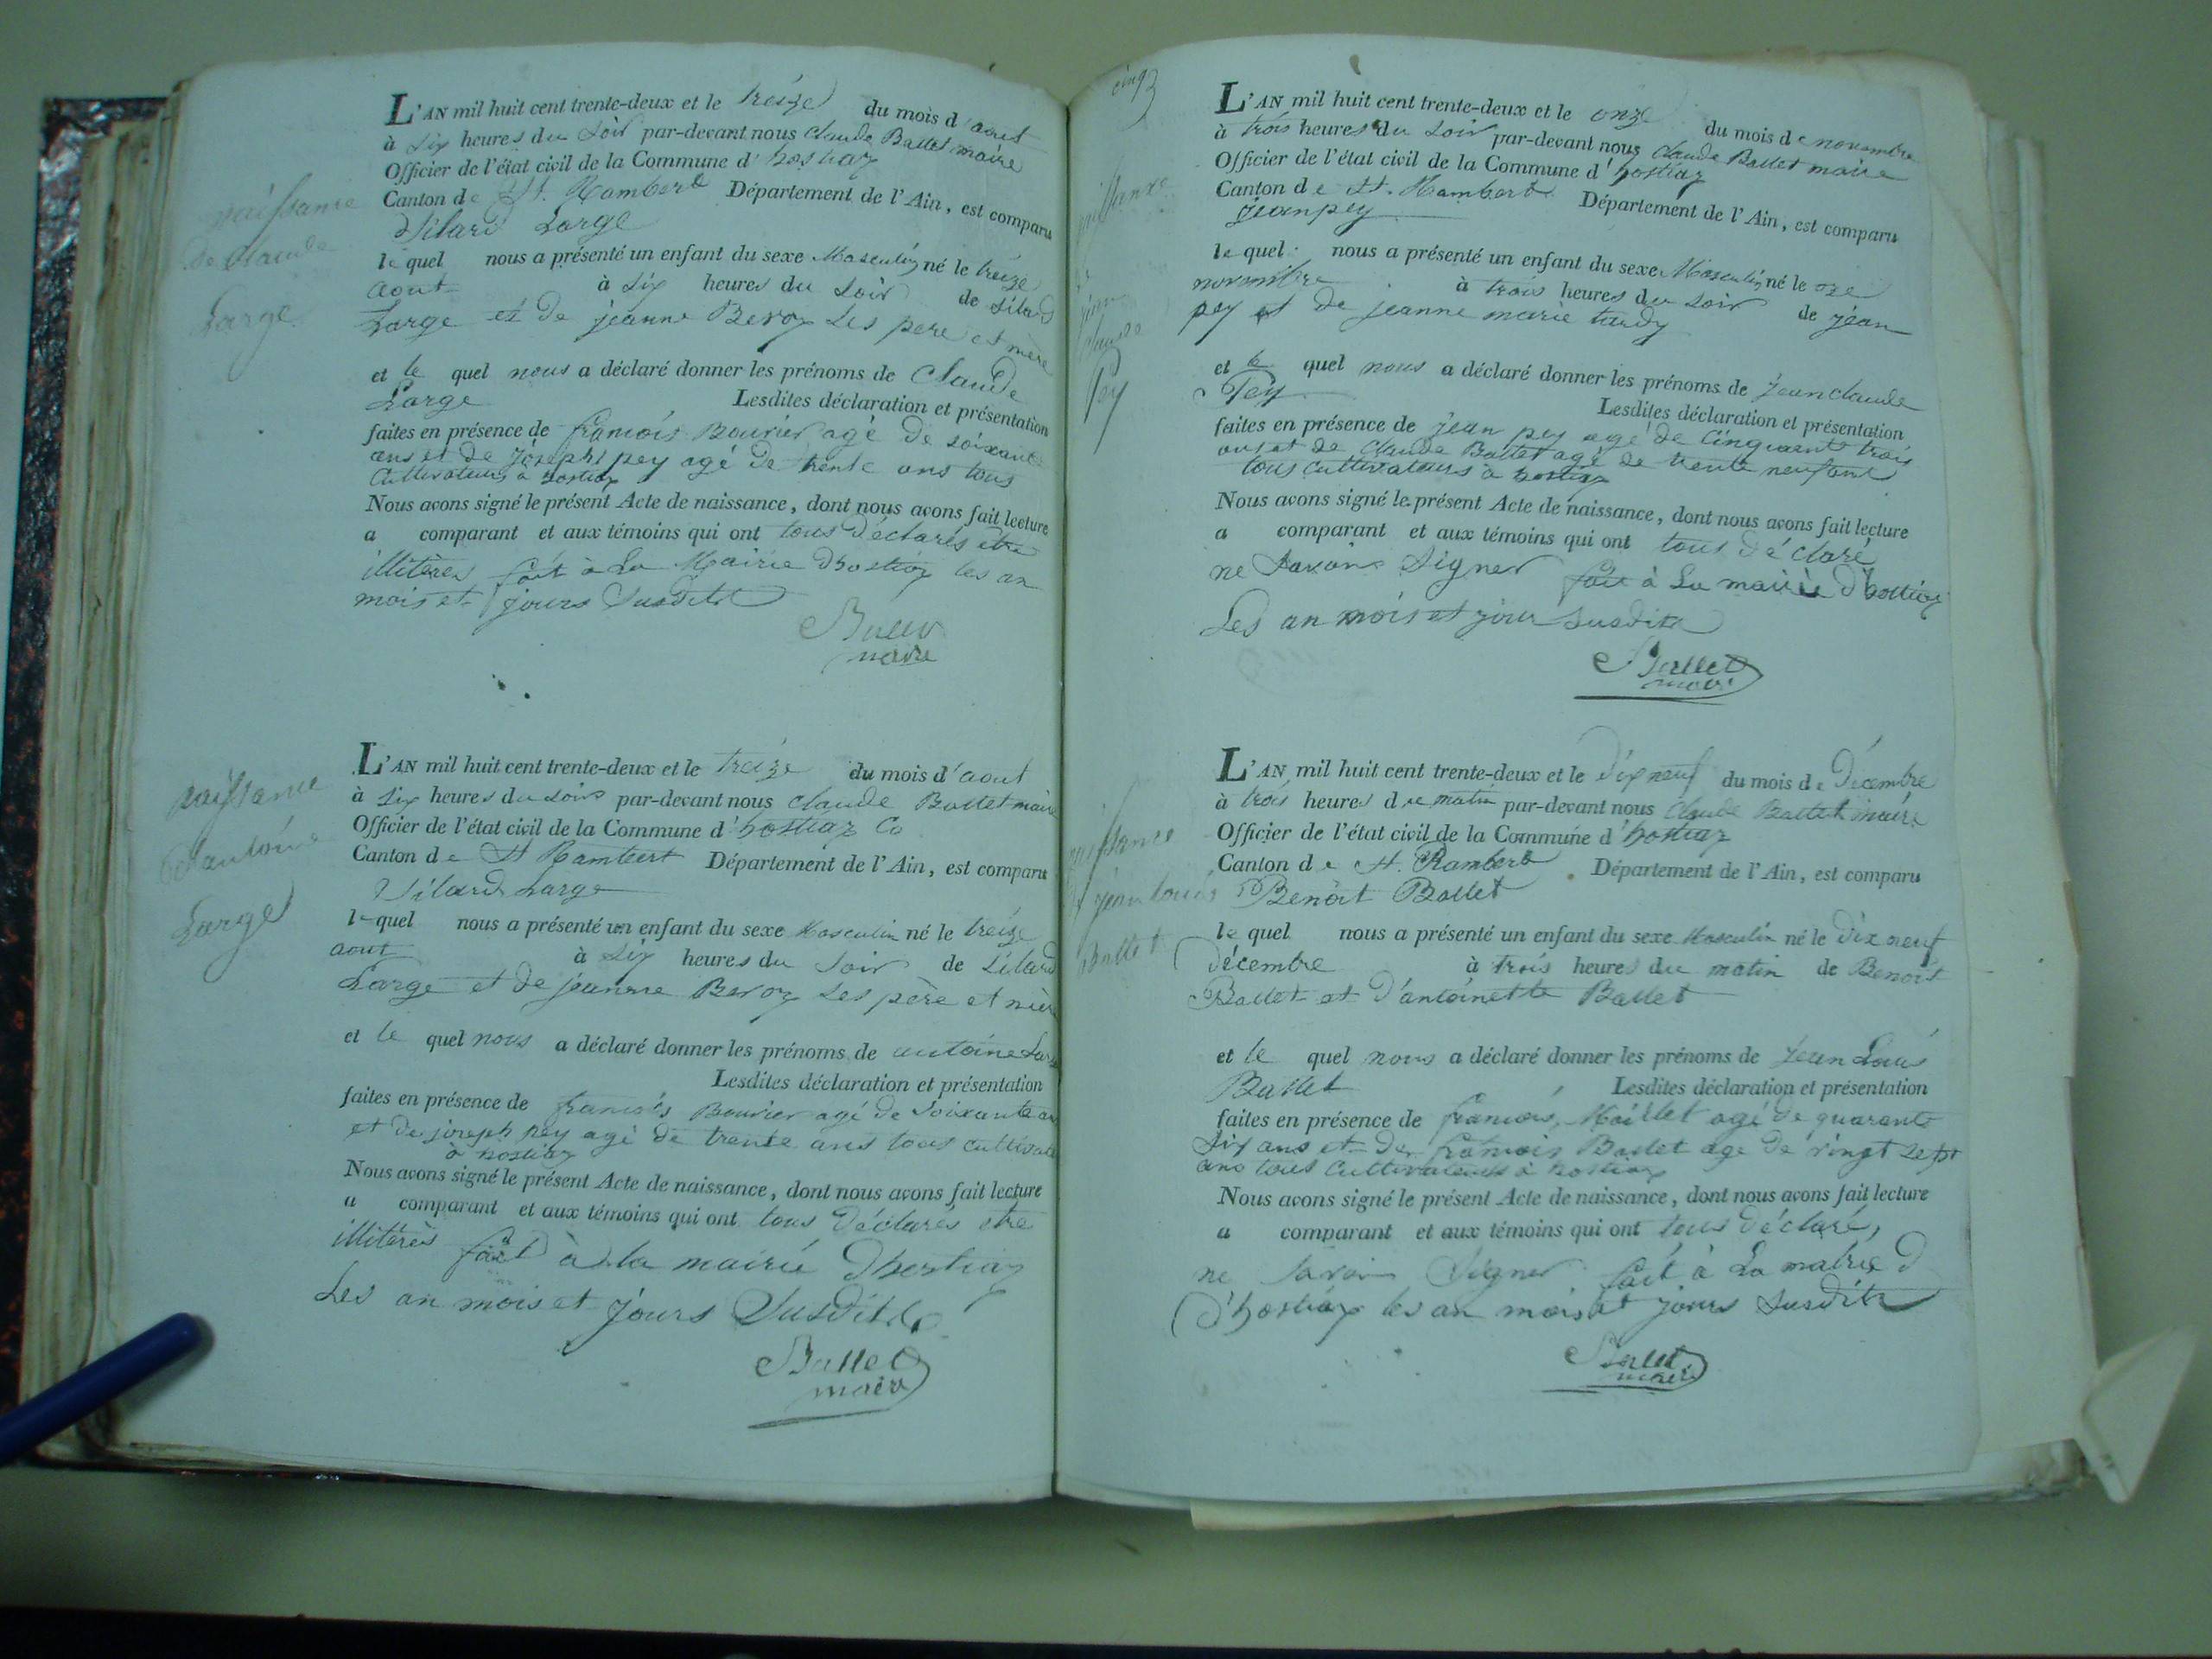 naissance
de Claude
Large
L'AN mil huit cent trente-deux et le treize du mois d'aout
à six heures du soir par-devant nous Claude Ballet maire
Officier de l'état civil de la Commune d'hostiaz
Canton de St. Rambert Département de l'Ain, est comparu
Silard Large
lequel nous a présenté un enfant du sexe Masculin né le treize
aout à six heures du soir de Silard
Large et de jeanne Beroz Les pere et mere
et le quel nous a déclaré donner les prénoms de Claude
Large Lesdites déclaration et présentation
faites en présence de francois Bouvier agé de soixante
ans et de joseph pey agé de trente ans tous
cultivateurs à hostiaz
Nous avons signé le présent Acte de naissance, dont nous avons fait lecture
a comparant et aux témoins qui ont tous déclarés être
illitéres fait à La Mairie d'hostiaz les an
mois et jours Susdits
Ballet
maire
naissance
d'antoine
Large
L'AN mil huit cent trente-deux et le treize du mois d'aout
à six heures du soir par-devant nous claude Ballet maire
Officier de l'état civil de la Commune d'hostiaz Co
Canton de St Rambert Département de l'Ain, est comparu
Silard Large
lequel nous a présenté un enfant du sexe Masculin né le treize
aout à six heures du soir de Silard
Large et de jeanne Beroz Les père et mère
et le quel nous a déclaré donner les prénoms de antoine Large
Lesdites déclaration et présentation
faites en présence de francois Bouvier agé de soixante ans
et de joseph pey agé de trente ans tous cultivate
à hostiaz
Nous avons signé le présent Acte de naissance, dont nous avons fait lecture
a comparant et aux témoins qui ont tous déclarés etre
illitérés fait à la mairie d'hostiaz
Les an mois et jours Susdits
Ballet
maire
cinq
naissance
jean
Claude
Pey
L'AN mil huit cent trente-deux et le onze du mois de novembre
à trois heures du soir par-devant nous Claude Ballet maire
Officier de l'état civil de la Commune d'hostiaz
Canton de St. Rambert Département de l'Ain, est comparu
jean pey
lequel nous a présenté un enfant du sexe Masculin né le oze
novembre à trois heures du soir de jean
pey et de jeanne marie tardy
et le quel nous a déclaré donner les prénoms de jean claude
Pey Lesdites déclaration et présentation
faites en présence de jean pey agé de cinquante trois
ans et de Claude Ballet agé de trente neuf ans
tous cultivateurs à hostiaz
Nous avons signé le présent Acte de naissance, dont nous avons fait lecture
a comparant et aux témoins qui ont tous déclaré
ne savoir signer fait à La mairie d'hostiaz
Les an mois et jour susdits
Ballet
maire
naissance
de jean louis
Ballet
L'AN mil huit cent trente-deux et le dix neuf du mois de Décembre
à trois heures du matin par-devant nous Claude Ballet maire
Officier de l'état civil de la Commune d'hostiaz
Canton de St. Rambert Département de l'Ain, est comparu
Benoit Ballet
lequel nous a présenté un enfant du sexe Masculin né le dix neuf
décembre à trois heures du matin de Benoit
Ballet et d'antoinette Ballet
et le quel nous a déclaré donner les prénoms de jean Louis
Ballet Lesdites déclaration et présentation
faites en présence de francois Maillet agé de quarante
six ans et de francois Ballet age de vingt sept
ans tous cultivateurs à hostiaz
Nous avons signé le présent Acte de naissance, dont nous avons fait lecture
a comparant et aux témoins qui ont tous déclaré
ne savoir signer fait à La mairie d
d'hostiaz les an mois et jours susdits
Ballet
maire